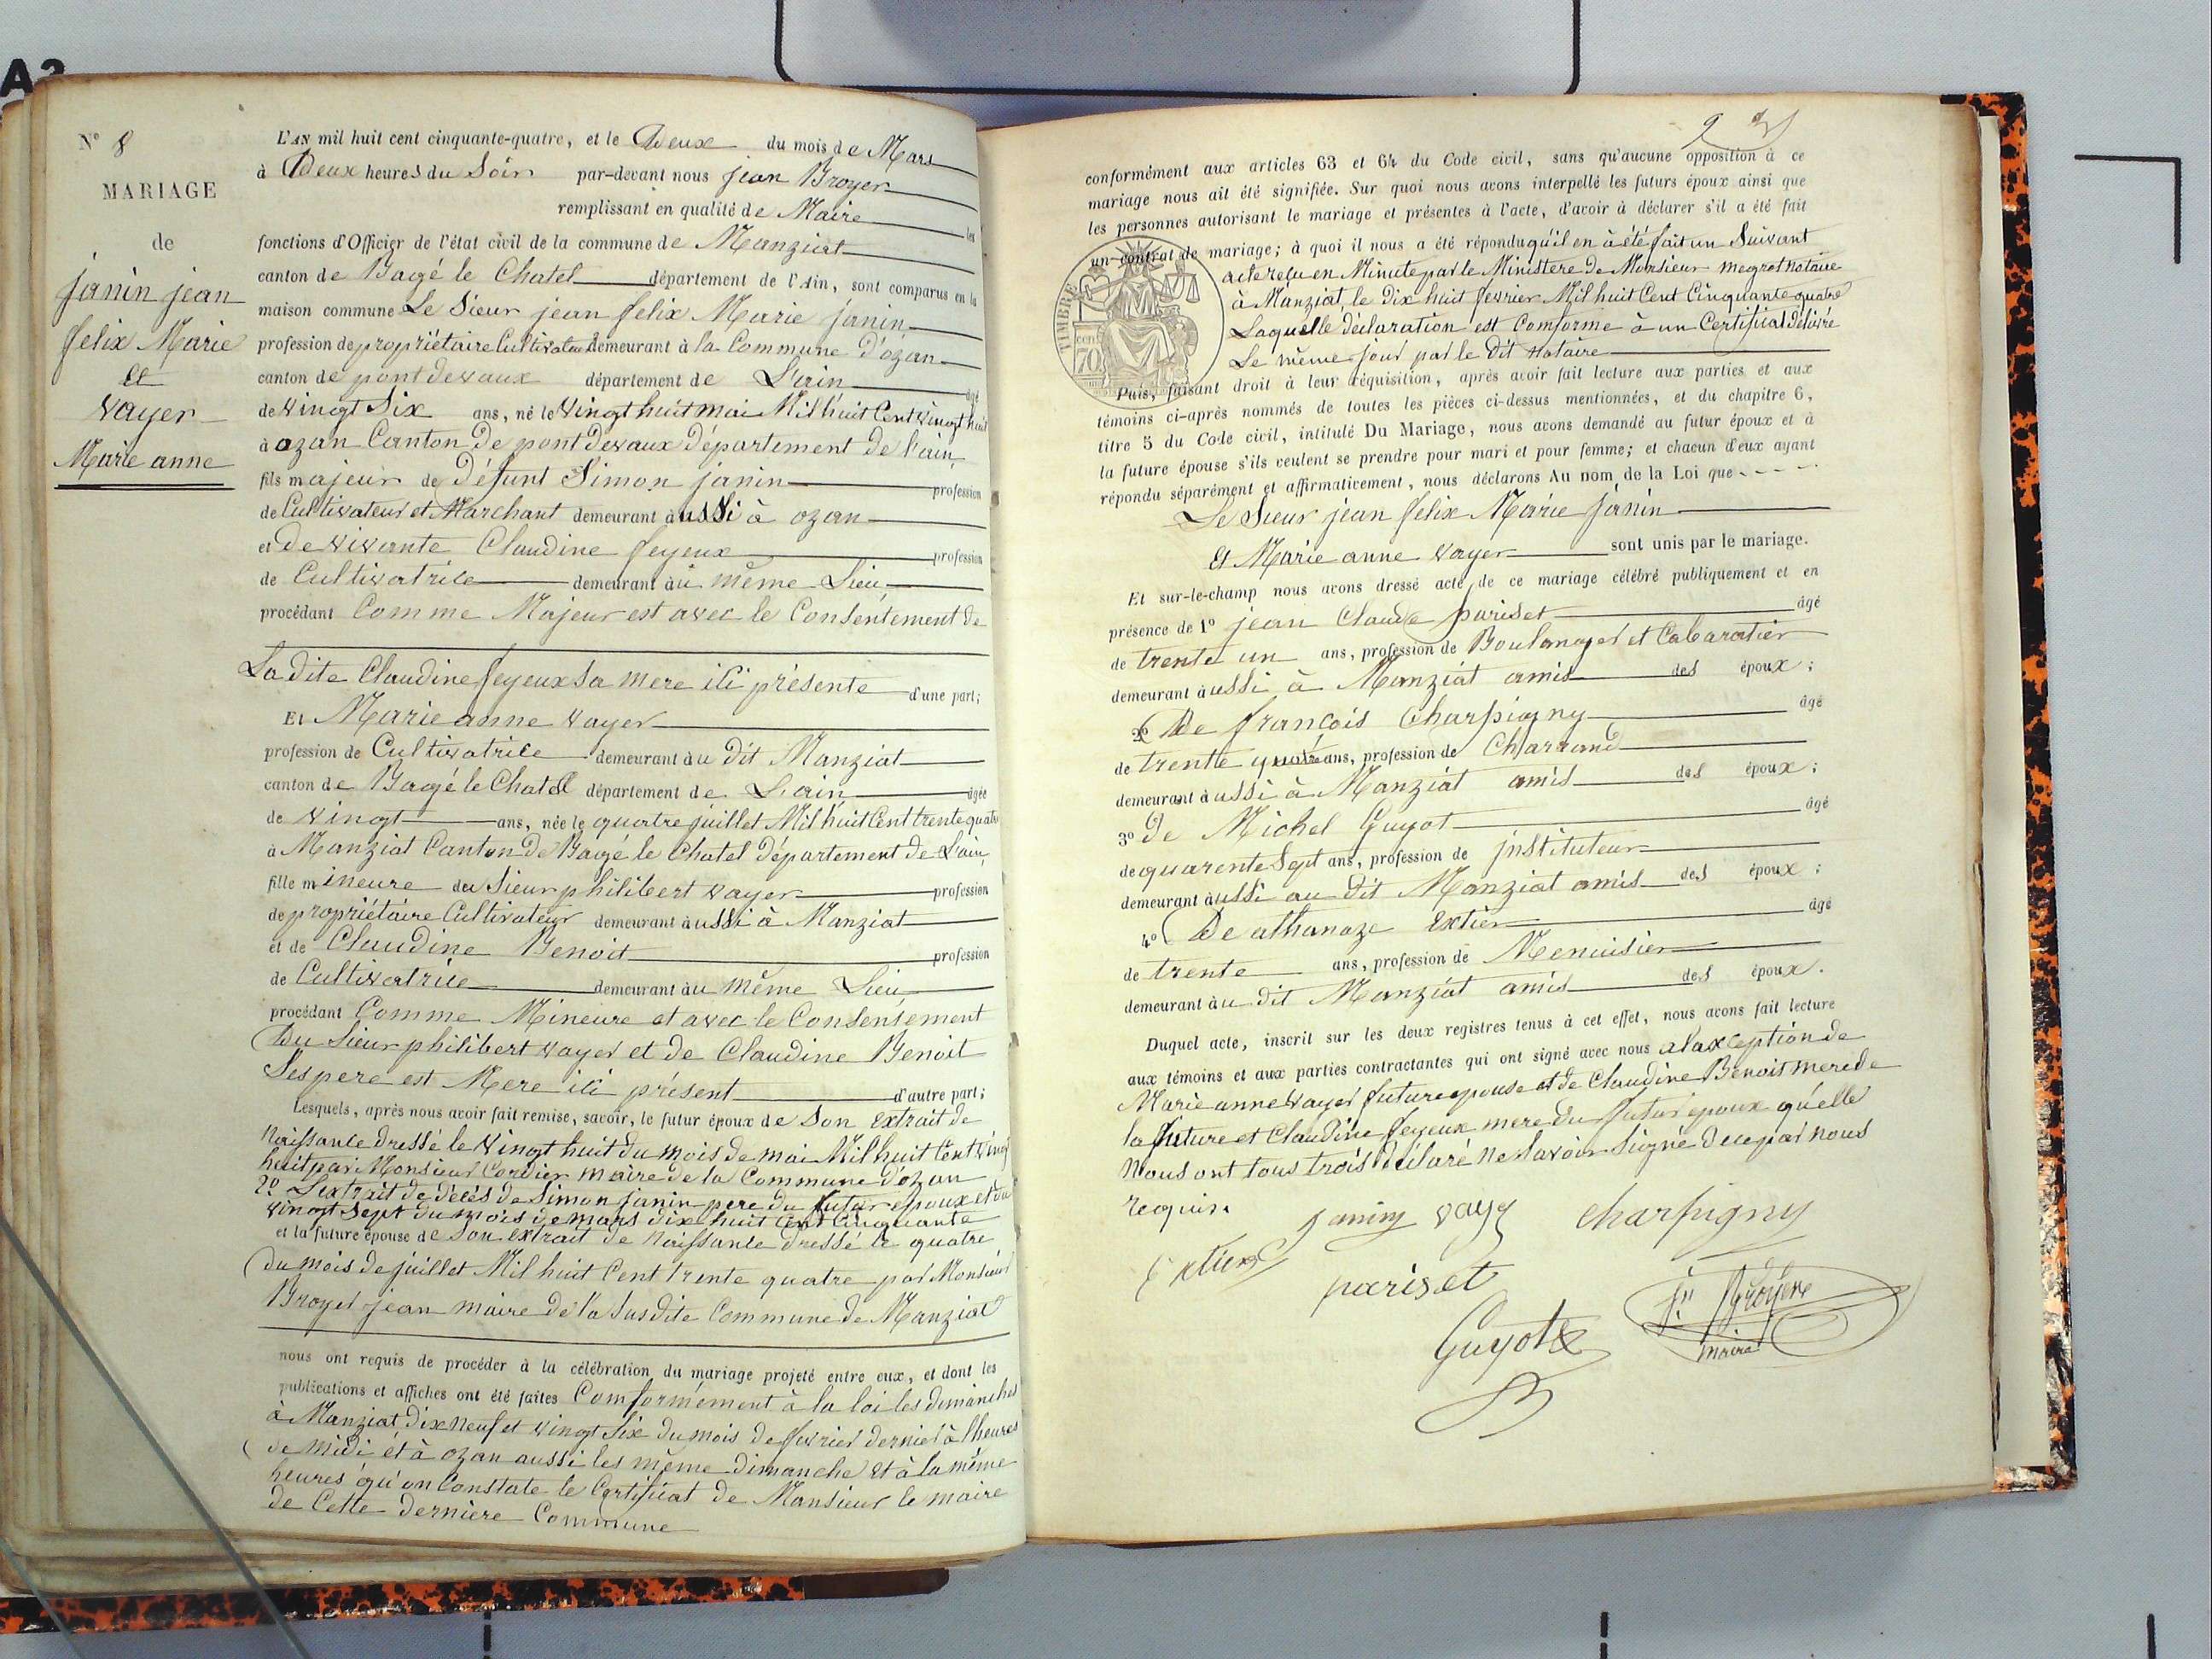 A3
N° 8
MARIAGE
de
janin jean
felix Marie
et
vayer
Marie anne
L'AN mil huit cent cinquante-quatre, et le Deux du mois de Mars
à Deux heures du Soir par-devant nous jean Broyer
remplissant en qualité de Maire les
fonctions d'Officier de l'état civil de la commune de Manziat
canton de Bagé le Chatel département de l'Ain, sont comparus en la
maison commune Le Sieur jean felix Marie janin
profession de propriétaire Cultivateur demeurant à la Commune d'ozan
canton de pont devaux département de L'ain âgé
de vingt Six ans, né le vingt huit mai Mil huit Cent vingt huit
à ozan Canton de pont devaux département de l'ain
fils majeur de défunt Simon janin profession
de Cultivateur et Marchant demeurant àussi à ozan
et de vivante Claudine feyeux profession
de Cultivatrice demeurant àu même Lieu
procédant Comme Majeur est avec le Consentement de
La dite Claudine feyeux Sa mere ici présente d'une part;
Et Marie anne vayer
profession de Cultivatrice demeurant àu dit Manziat
canton de Bagé le Chatel département de L'ain âgée
de vingt ans, née le quatre juillet Mil huit Cent trente quatre
à Manziat Canton de Bagé le Chatel département de L'ain
fille mineure du Sieur philibert vayer profession
de propriétaire Cultivateur demeurant àussi à Manziat
et de Claudine Benoit profession
de Cultivatrice demeurant àu même Lieu
procédant Comme Mineure et avec le Consensement
Du Sieur philibert vayer et de Claudine Benoit
Ses pere est Mere ici présent d'autre part;
Lesquels, après nous avoir fait remise, savoir, le futur époux de Son extrait de
Naissance dressé le vingt huit du mois de mai Mil huit Cent vingt
huit par Monsieur Cordier maire de la Commune d'ozan
2° L'extrait de décés de Simon janin pere du futur epoux et du
vingt Sept du mois de mars dix huit cent cinquante
et la future épouse de Son extrait de Naissance dressé le quatre
du mois de juillet Mil huit Cent trente quatre par Monsieur
Broyer jean maire de la Susdite Commune de Manziat
nous ont requis de procéder à la célébration du mariage projeté entre eux, et dont les
publications et affiches ont été faites Comformément à la loi les dimanches
à Manziat dix neuf et vingt Six du mois de fevrier dernier à lheures
de midi et à ozan aussi les même dimanche et à la même
heures qu'on Constate le Certificat de Monsieur le maire
de Cette dernière Commune
conformément aux articles 63 et 64 du Code civil, sans qu'aucune opposition à ce
mariage nous ait été signifiée. Sur quoi nous avons interpellé les futurs époux ainsi que
les personnes autorisant le mariage et présentes à l'acte, d'avoir à déclarer s'il a été fait
un contrat de mariage; à quoi il nous a été répondu qu'il en à été fait un Suivant
acte reçu en Minute par le Ministere de Monsieur megret notaire
à Manziat le dix huit fevrier Mil huit Cent Cinquante quatre
Laquelle déclaration est Comforme à un Certificat délivré
Le même jour par le dit Notaire
TIMBRE
70
Puis, faisant droit à leur réquisition, après avoir fait lecture aux parties et aux
témoins ci-après nommés de toutes les pièces ci-dessus mentionnées, et du chapitre 6,
titre 5 du Code civil, intitulé Du Mariage, nous avons demandé au futur époux et à
la future épouse s'ils veulent se prendre pour mari et pour femme; et chacun d'eux ayant
répondu séparément et affirmativement, nous déclarons Au nom de la Loi que
Le Sieur jean felix Marie janin
Et Marie anne vayer sont unis par le mariage.
Et sur-le-champ nous avons dressé acte de ce mariage célébré publiquement et en
présence de 1° jean Claude pariset âgé
de trente un ans, profession de Boulanger et Cabaratier
demeurant àussi à Manziat amis des époux;
2° De françois Charpigny âgé
de trente quatre ans, profession de Charrand
demeurant àussi à Manziat amis des époux;
3° De Michel Guyot âgé
de quarente Sept ans, profession de jnstituteur
demeurant àussi au dit Manziat amis des époux;
4° De athanaze Extier âgé
de trente ans, profession de Menuisier
demeurant àu dit Manziat amis des époux.
Duquel acte, inscrit sur les deux registres tenus à cet effet, nous avons fait lecture
aux témoins et aux parties contractantes qui ont signé avec nous alaxception de
Marie anne vayer future epouse et de Claudine Benoit mere de
la future et Claudine feyeux mere du futur epoux qu'elle
Nous ont tous trois déclaré ne Savoir Signé dece par nous
requis.
janin vaye charpigny
Extier
pariset
jn Broyere
Guyot
maire